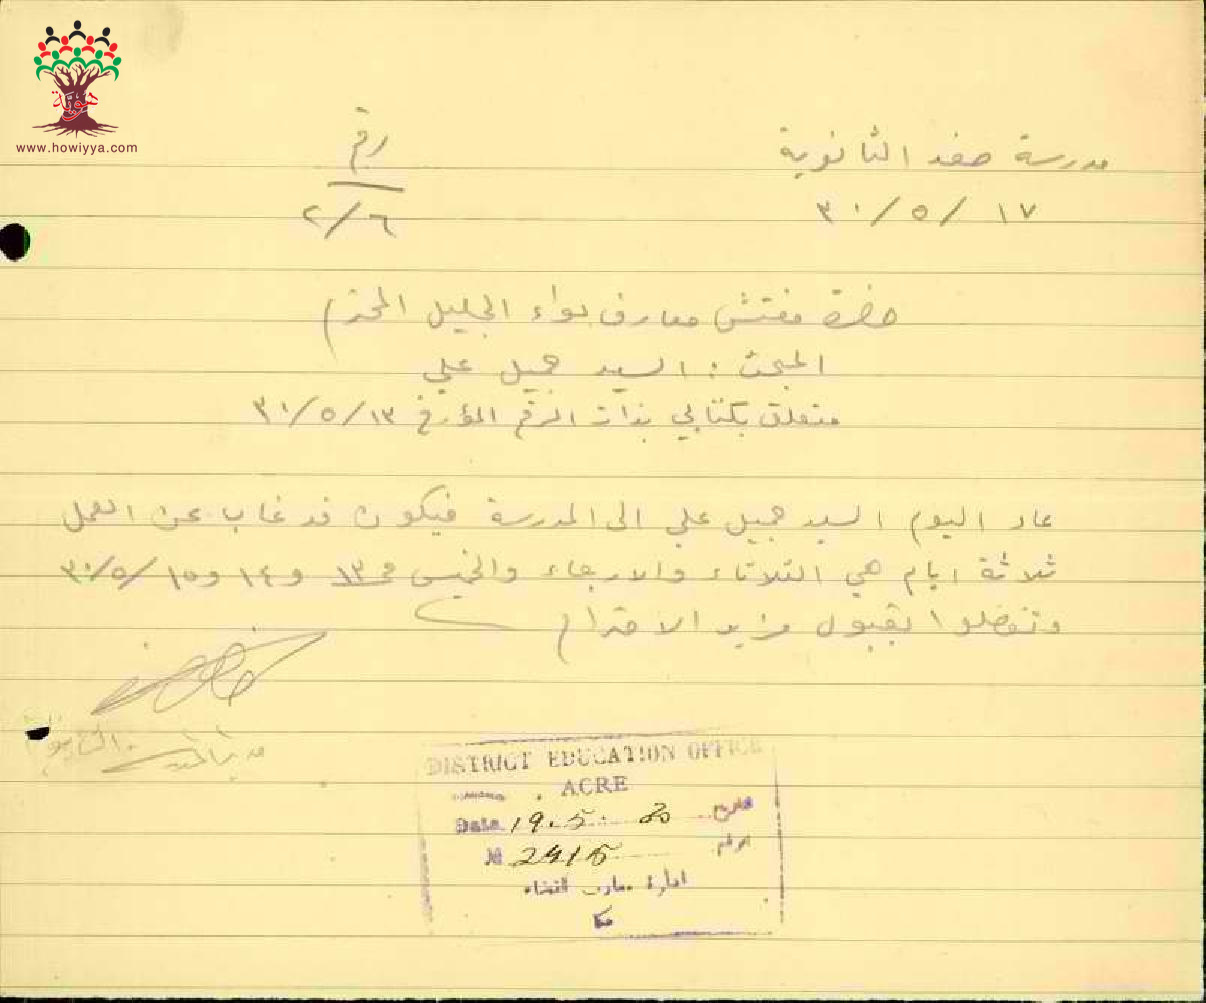 هوية
www.howiyya.com
مدرسة صفد الثانوية
رقم
١٧ / ٥ / ٣٠
٦/٢
حضرة مفتش معارف لواء الجليل المحترم
المبحث : السيد جميل علي
متعلق بكتابي بذات الرقم المؤرخ ١٣/٥/٣٠
عاد اليوم السيد جميل علي الى المدرسة فيكون قد غاب عن العمل
ثلاثة ايام هي الثلاثاء والاربعاء والخميس في ١٣ و ١٤ و ١٥/٥/٣٠
وتفضلوا بقبول مزيد الاحترام
DISTRICT EDUCATION OFFICE
ACRE
Date 19.5. 30
№ 2415 الرقم
ادارة معارف القضاء
عكا